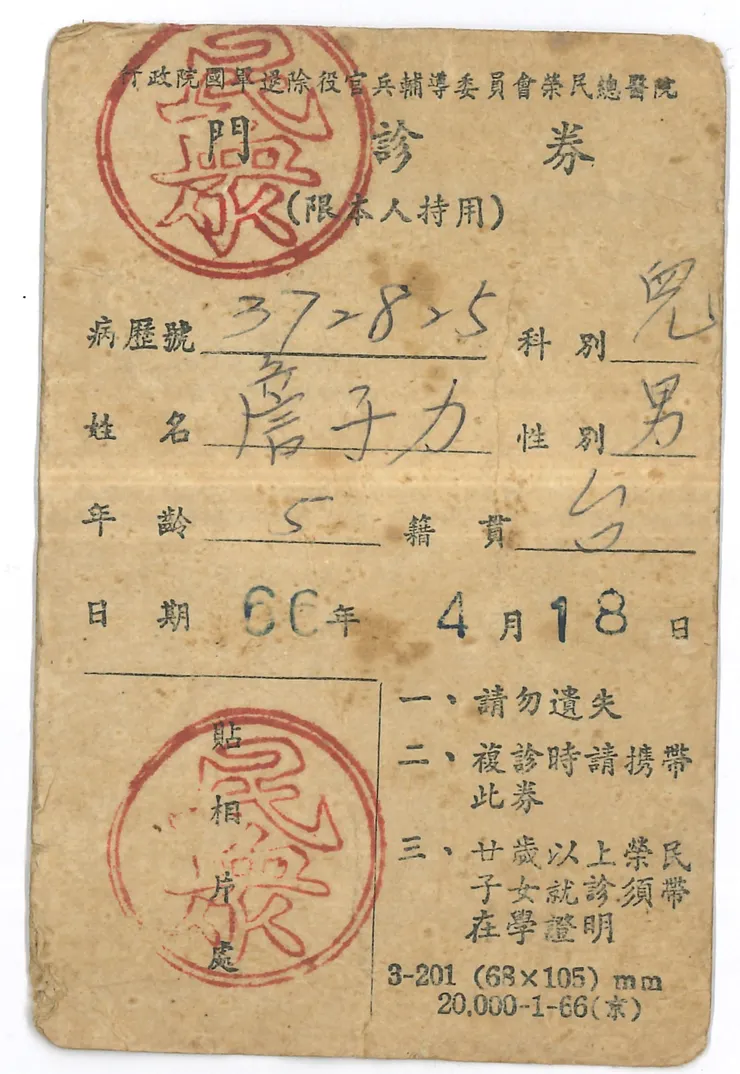 行政院國軍退除役官兵輔導委員會榮民總醫院
門診券
(限本人持用)
民眾
病歷號 372825 科別 兒
姓名 詹子力 性別 男
年齡 5 籍貫 台
日期 66年 4月18日
貼相片處
民眾
一、請勿遺失
二、複診時請携帶
此券
三、廿歲以上榮民
子女就診須帶
在學證明
3-201 (68×105) mm
20,000-1-66(京)